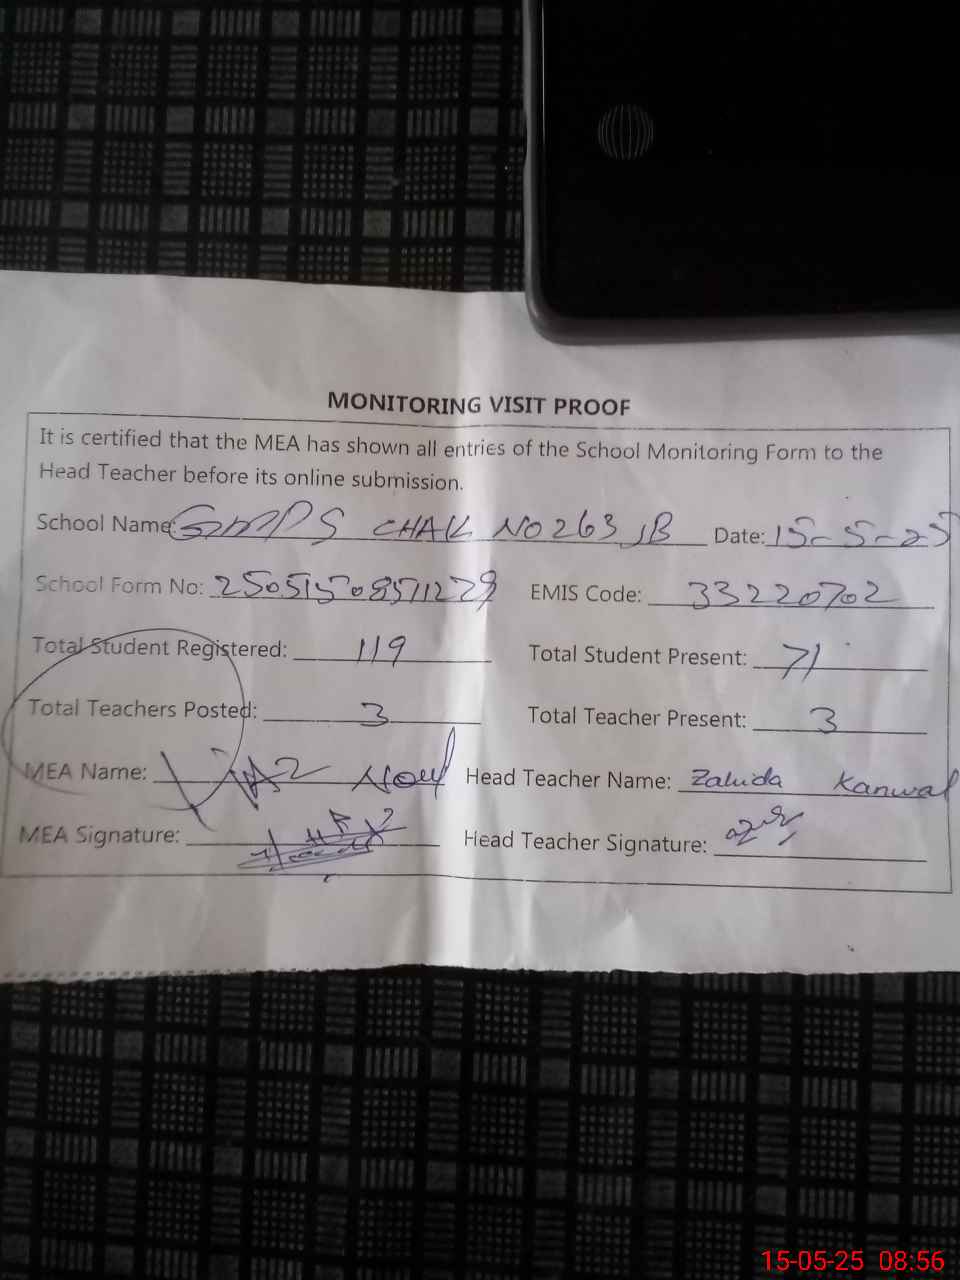 MONITORING VISIT PROOF
It is certified that the MEA has shown all entries of the School Monitoring Form to the
Head Teacher before its online submission.
School Name: GMPS CHAK NO 263 JB Date: 15-5-25
School Form No: EMIS Code: 33220702
Total Student Registered: 119 Total Student Present: 71
Total Teachers Posted: 3 Total Teacher Present: 3
MEA Name: Head Teacher Name: Zahida Kanwal
MEA Signature: Head Teacher Signature:
15-05-25 08:56